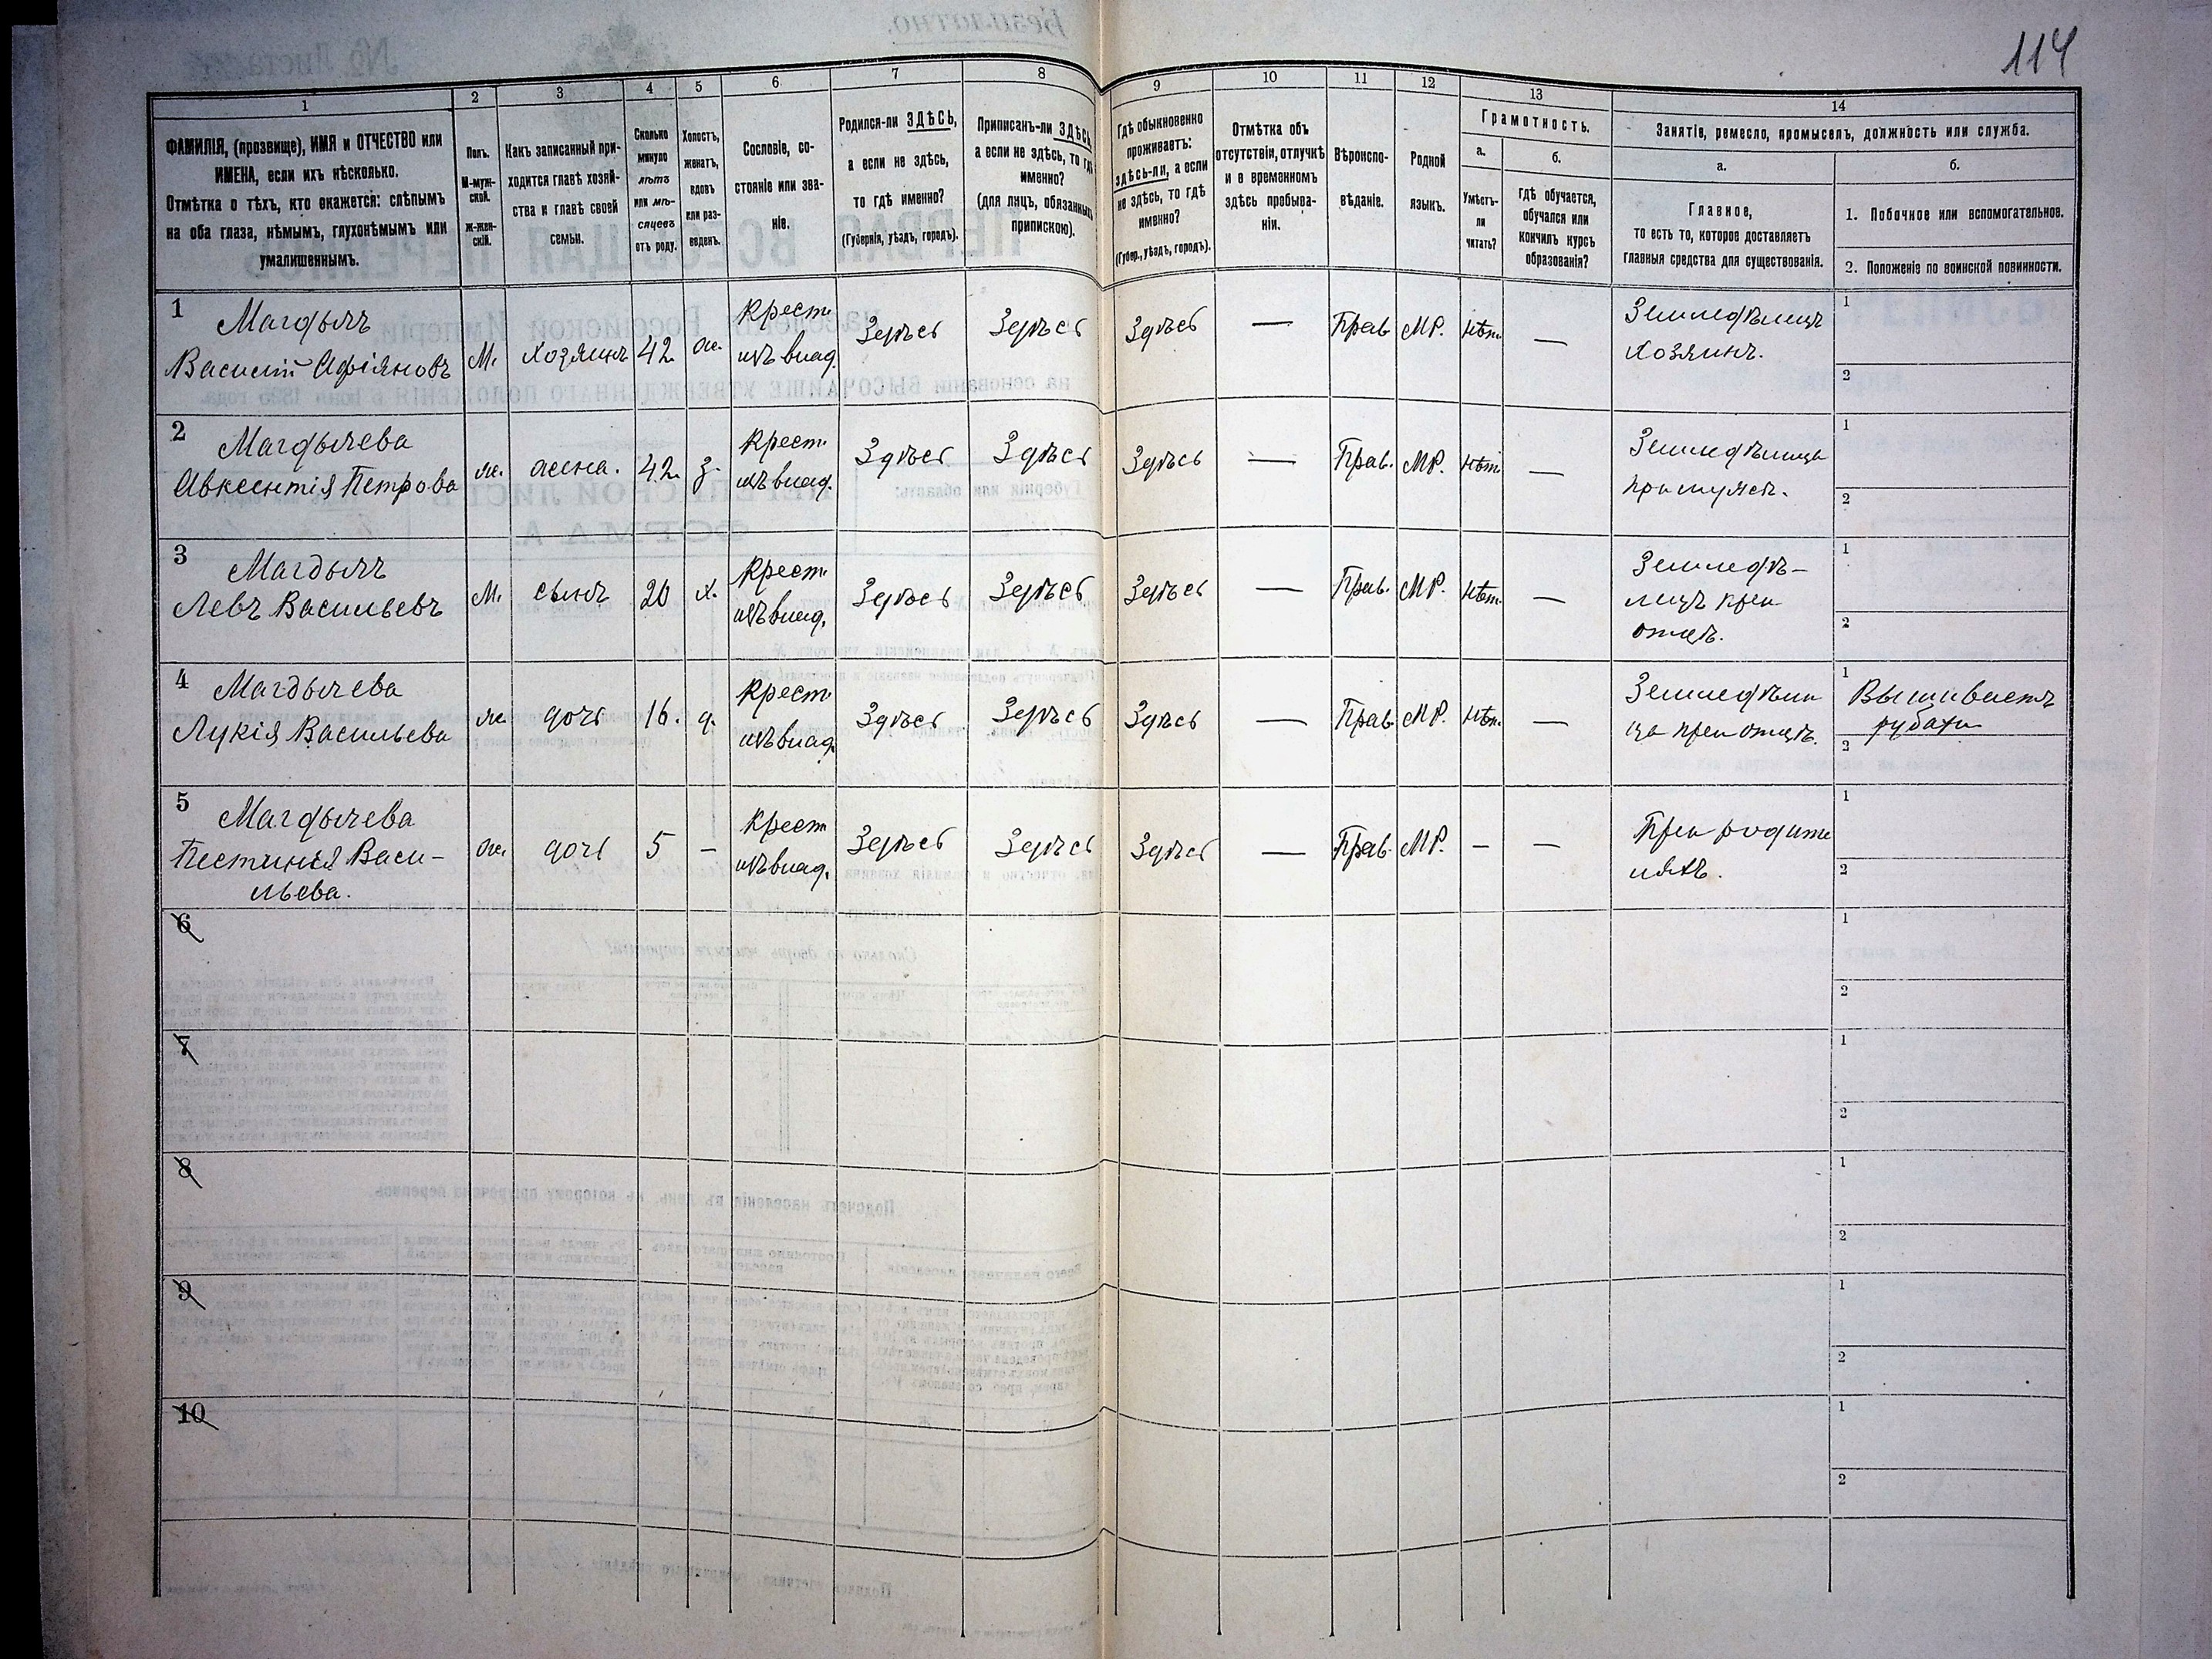 114
1
2
3
4
5
6
7
8
9
10
11
12
13
14
ФАМИЛІЯ, (прозвище), ИМЯ и ОТЧЕСТВО или
ИМЕНА, если ихъ нѣсколько.
Отмѣтка о тѣхъ, кто окажется: слѣпымъ
на оба глаза, нѣмымъ, глухонѣмымъ или
умалишеннымъ.
Полъ.
М-муж-
ской.
Ж-жен-
скій.
Какъ записанный при-
ходится главѣ хозяй-
ства и главѣ своей
семьи.
Сколько
минуло
лѣтъ
или мѣ-
сяцевъ
отъ роду.
Холостъ,
женатъ,
вдовъ
или раз-
веденъ.
Сословіе, со-
стояніе или зва-
ніе.
Родился-ли ЗДѢСЬ,
а если не здѣсь,
то гдѣ именно?
(Губернія, уѣздъ, городъ).
Приписанъ-ли ЗДѢСЬ,
а если не здѣсь, то гдѣ
именно?
(для лицъ, обязанныхъ
припискою).
Гдѣ обыкновенно
проживаетъ:
здѣсь-ли, а если
не здѣсь, то гдѣ
именно?
(Губер., уѣздъ, городъ).
Отмѣтка объ
отсутствіи, отлучкѣ
и о временномъ
здѣсь пребыва-
ніи.
Вѣроиспо-
вѣданіе.
Родной
языкъ.
Грамотность.
а.
Умѣетъ-
ли
читать?
б.
гдѣ обучается,
обучался или
кончилъ курсъ
образованія?
Занятіе, ремесло, промыселъ, должность или служба.
а.
Главное,
то есть то, которое доставляетъ
главныя средства для существованія.
б.
1. Побочное или вспомогательное.
2. Положеніе по воинской повинности.
1
Магдычъ
Василій Афіяновъ
М.
хозяинъ
42
ж.
Крест.
изъ влад.
Здѣсь
Здѣсь
Здѣсь
—
Прав.
МР.
нѣт.
—
Земледѣлецъ
хозяинъ.
1
2
2
Магдычева
Авксентія Петрова
ж.
жена.
42.
з.
Крест.
изъ влад.
Здѣсь
Здѣсь
Здѣсь
—
Прав.
МР.
нѣт.
—
Земледѣлица
при мужѣ.
1
2
3
Магдычъ
Левъ Васильевъ
М.
сынъ
20
х.
Крест.
изъ влад.
Здѣсь
Здѣсь
Здѣсь
—
Прав.
МР.
нѣт.
—
Земледѣ-
лецъ при
отцѣ.
1
2
4
Магдычева
Лукія Васильева
ж.
дочь
16.
д.
Крест.
изъ влад.
Здѣсь
Здѣсь
Здѣсь
—
Прав.
МР.
нѣт.
—
Земледѣли
ца при отцѣ.
1
Вышиваетъ
рубахи
2
5
Магдычева
Пестинія Васи-
льева.
ж.
дочь
5
—
Крест
изъ влад.
Здѣсь
Здѣсь
Здѣсь
—
Прав.
МР.
—
—
При родите
ляхъ.
1
2
6
1
2
7
1
2
8
1
2
9
1
2
10
1
2